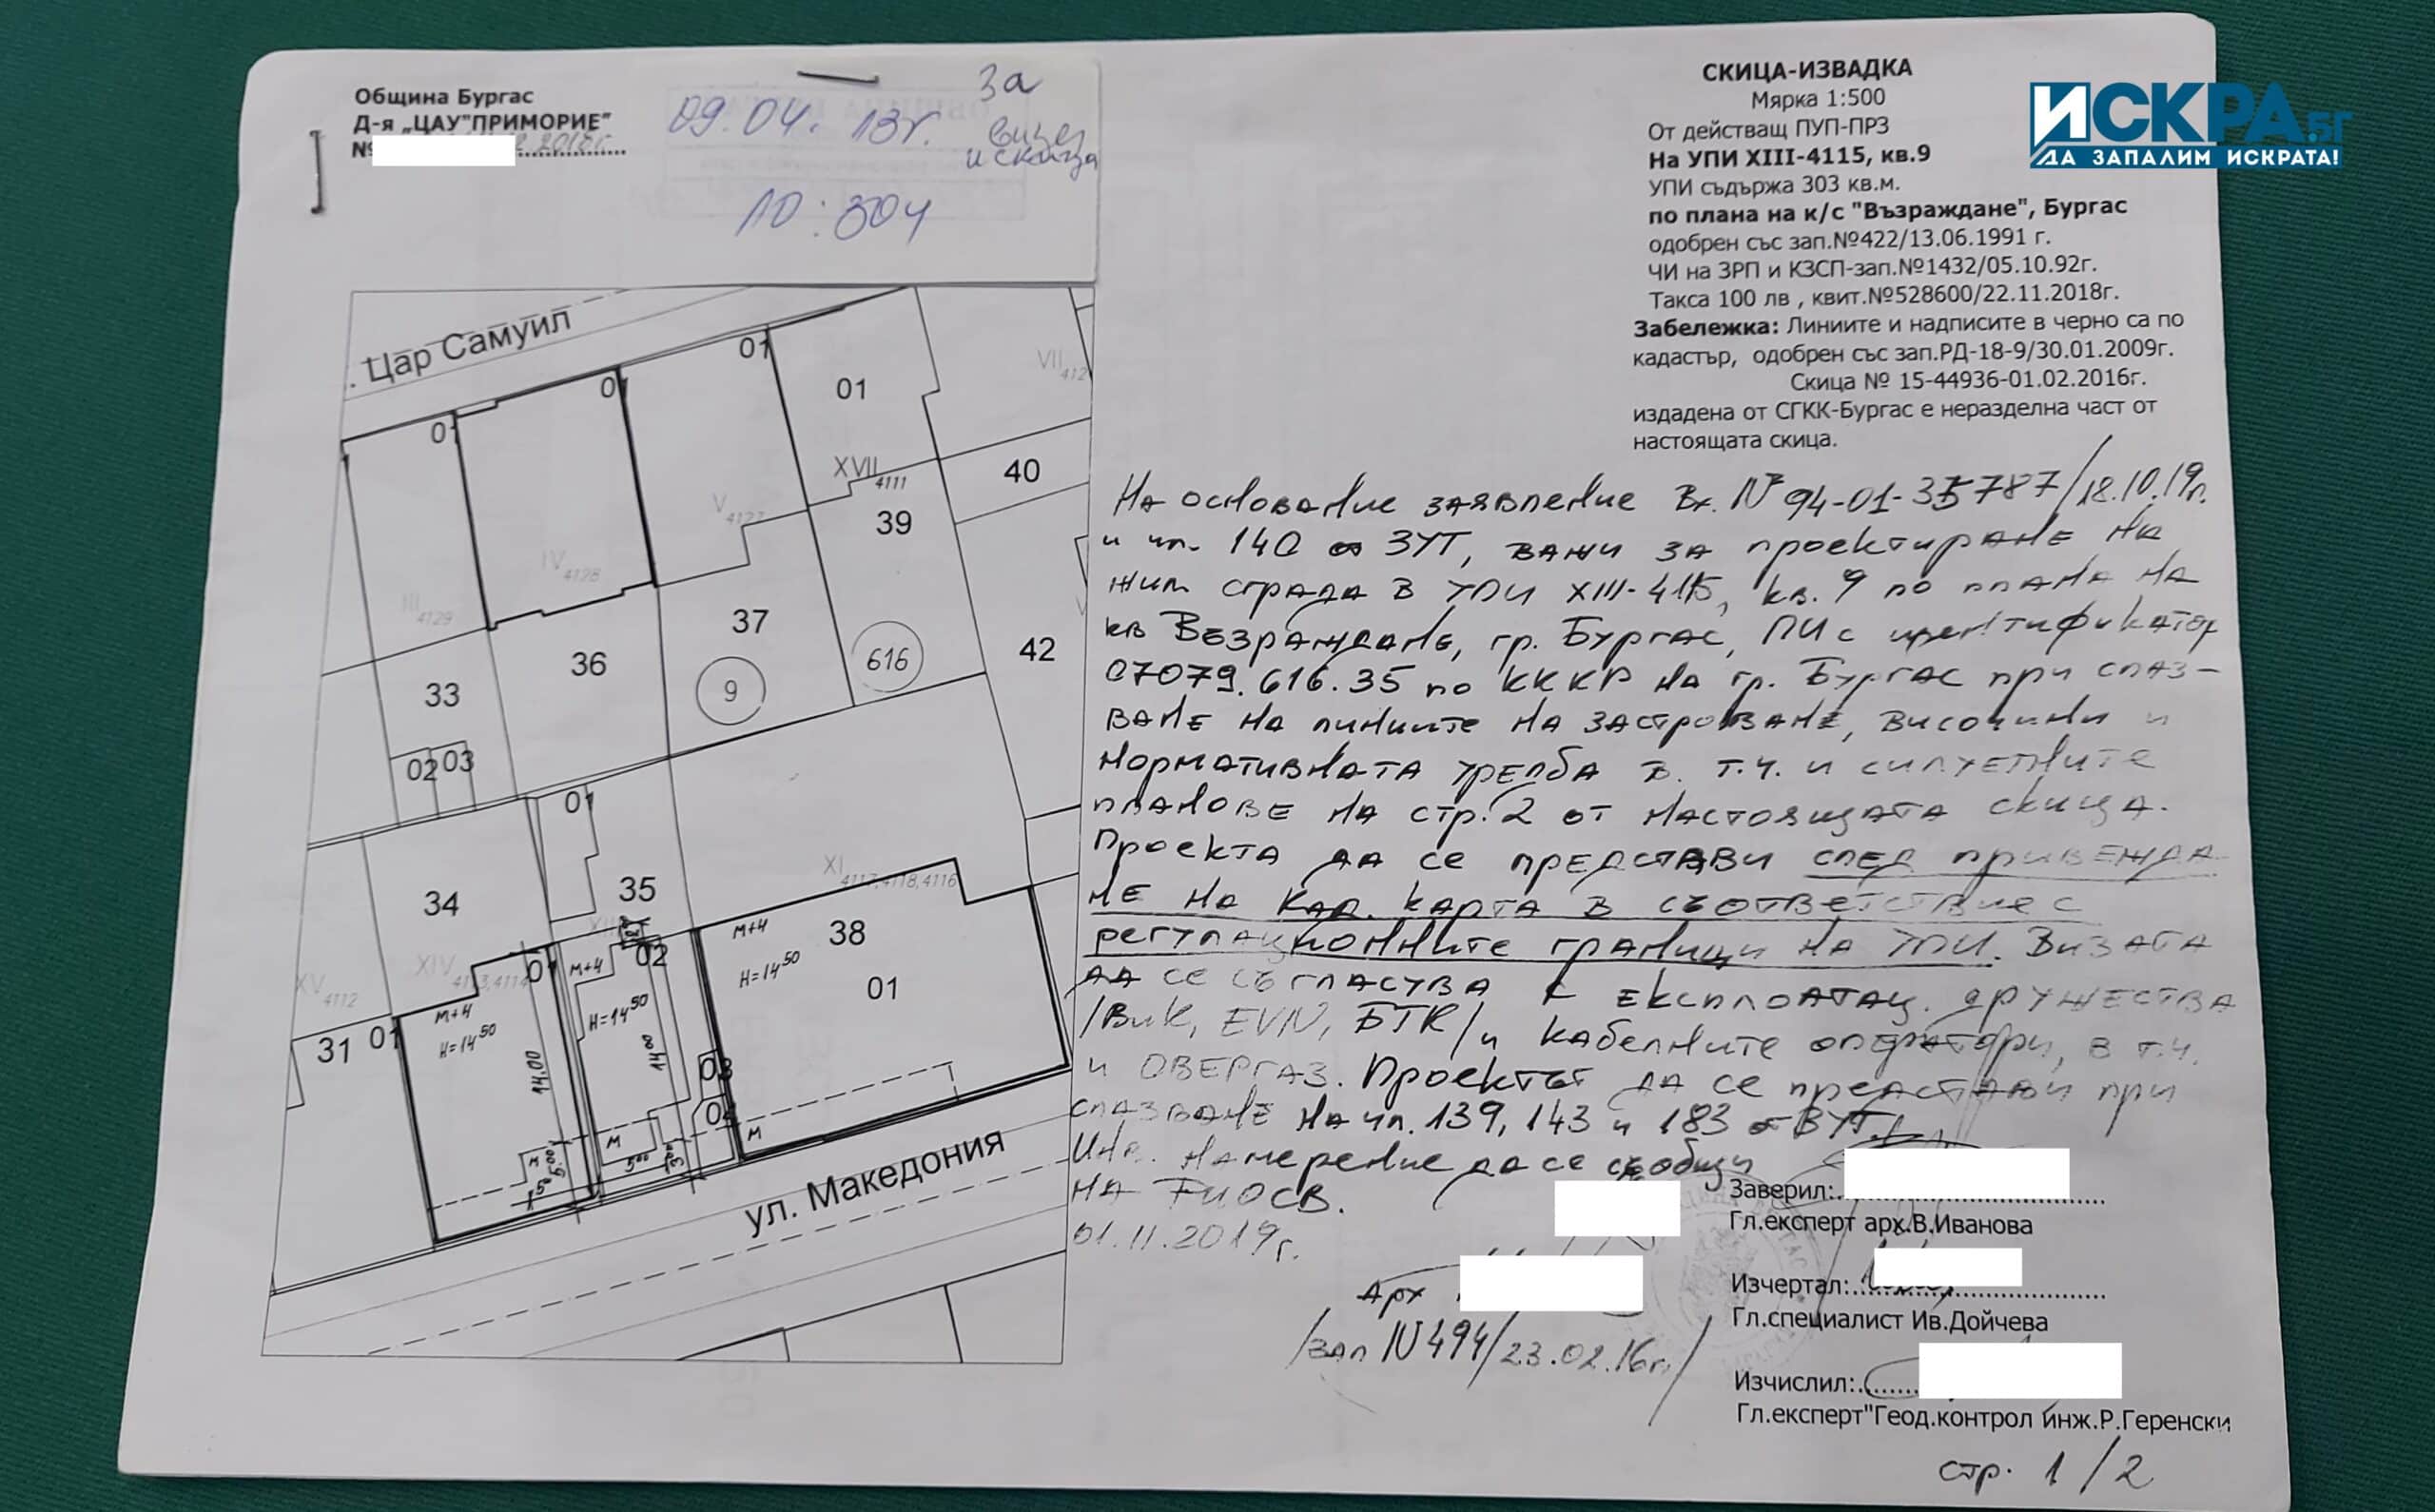 Община Бургас
Д-я „ЦАУ"ПРИМОРИЕ"
№
09.04. 13г.
за
визез
и скица
10:304
СКИЦА-ИЗВАДКА
Мярка 1:500
От действащ ПУП-ПРЗ
На УПИ XIII-4115, кв.9
УПИ съдържа 303 кв.м.
по плана на к/с "Възраждане", Бургас
одобрен със зап.№422/13.06.1991 г.
ЧИ на ЗРП и КЗСП-зап.№1432/05.10.92г.
Такса 100 лв , квит.№528600/22.11.2018г.
Забележка: Линиите и надписите в черно са по
кадастър, одобрен със зап.РД-18-9/30.01.2009г.
Скица № 15-44936-01.02.2016г.
издадена от СГКК-Бургас е неразделна част от
настоящата скица.
ИСКРА.БГ
ДА ЗАПАЛИМ ИСКРАТА!
. Цар Самуил
01
01
01
01
VII 412
XVII 4111
40
39
V 4127
IV 4128
III 4129
37
616
42
36
9
33
02 03
01
34
35
XI 4117,4118,4116
38
01
М+4
H=14 50
XIV 4113,4114
XV 4112
01
02
М+4
H=14 50
М+4
H=14 50
31
01
14.00
14 00
03
04
М
М
М
5 00
3 00
5.00
ул. Македония
На основание заявление Вх. № 94-01-35787/18.10.19г.
и чл. 140 от ЗУТ, важи за проектиране на
жил. сграда в УПИ XIII-4115, кв. 9 по плана на
кв Възраждане, гр. Бургас, ПИ с идентификатор
07079.616.35 по КККР на гр. Бургас при спаз-
ване на линиите на застрояване, височини и
нормативната уредба в. т.ч. и силуетните
планове на стр. 2 от настоящата скица.
Проекта да се представи след привежда
не на кад. карта в съответствие с
регулационните граници на УПИ. Визата
да се съгласува с експлоатац. дружества
/ВиК, EVN, БТК/ и кабелните оператори, в т.ч.
и ОВЕРГАЗ. Проектът да се представи при
спазване на чл. 139, 143 и 183 от ЗУТ.
Инв. намерение да се съобщи
на РИОСВ.
01.11.2019г.
Арх
/зап №494/23.02.16г./
Заверил:
Гл.експерт арх.В.Иванова
Изчертал:
Гл.специалист Ив.Дойчева
Изчислил:
Гл.експерт"Геод.контрол инж.Р.Геренски
стр. 1/2